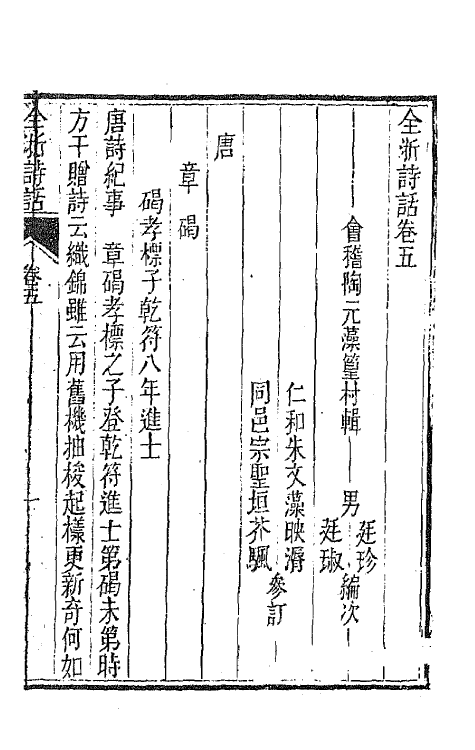 全浙詩話卷五
會稽陶元藻篁村輯 男 廷珍 廷琡 編次
仁和朱文藻映漘
同邑宗聖垣芥颿
參訂
唐
章碣
碣孝標子乾符八年進士
唐詩紀事 章碣孝標之子登乾符進士第碣未第時
方干贈詩云織錦雖云用舊機抽梭起樣更新奇何如
全浙詩話 卷五 一